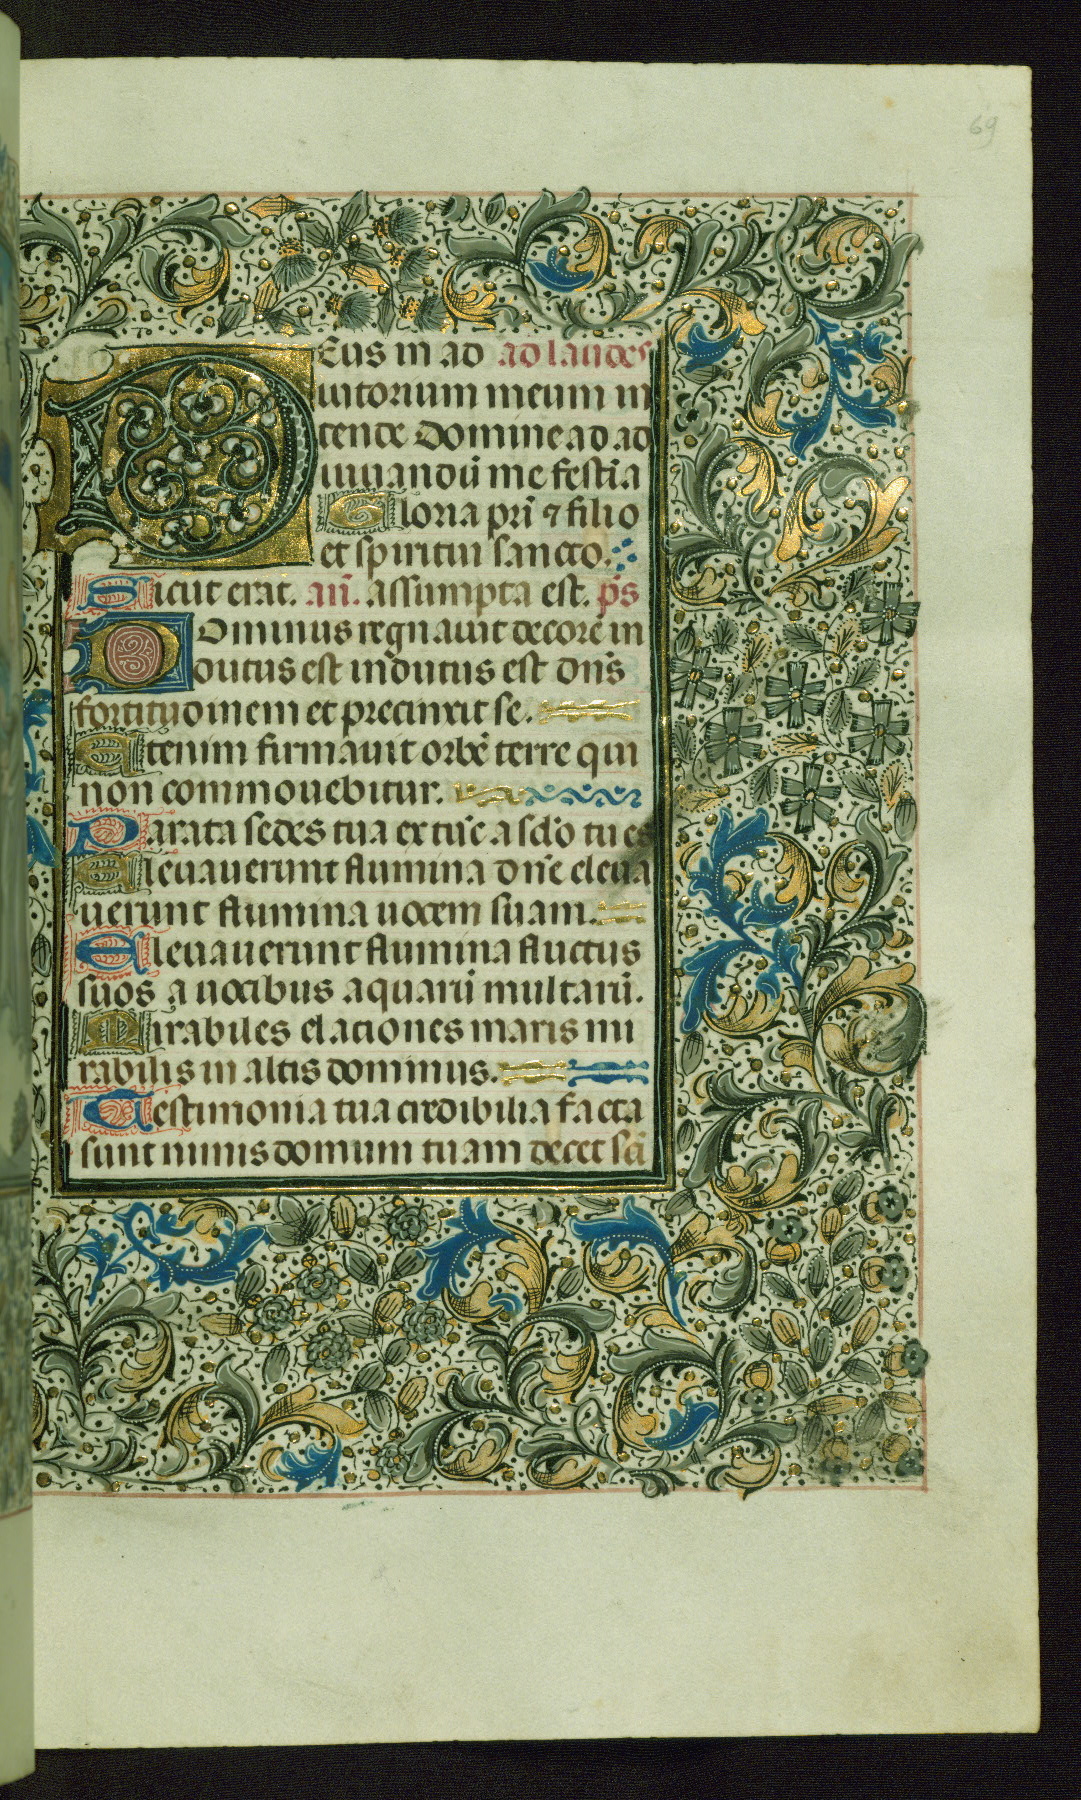 69
Deus in ad ad laudes
iutorium meum in
tende Domine ad ad
iuuandū me festīa
Gloria pr̄i ⁊ filio
et spiritui sancto.
Sicut erat. an̄. assumpta est. p̄s
Dominus regnauit decorē in
dutus est indutus est dn̄s
fortitudinem et precinxit se.
Etenim firmauit orbē terre qui
non commouebitur.
Parata sedes tua ex tūc a sclo tu es
Eleuauerunt flumina dn̄e eleua
uerunt flumina uocem suam.
Eleuauerunt flumina fluctus
suos a uocibus aquarū multarū.
Mirabiles elationes maris mi
rabilis in altis dominus.
Testimonia tua credibilia facta
sunt nimis domum tuam decet sci